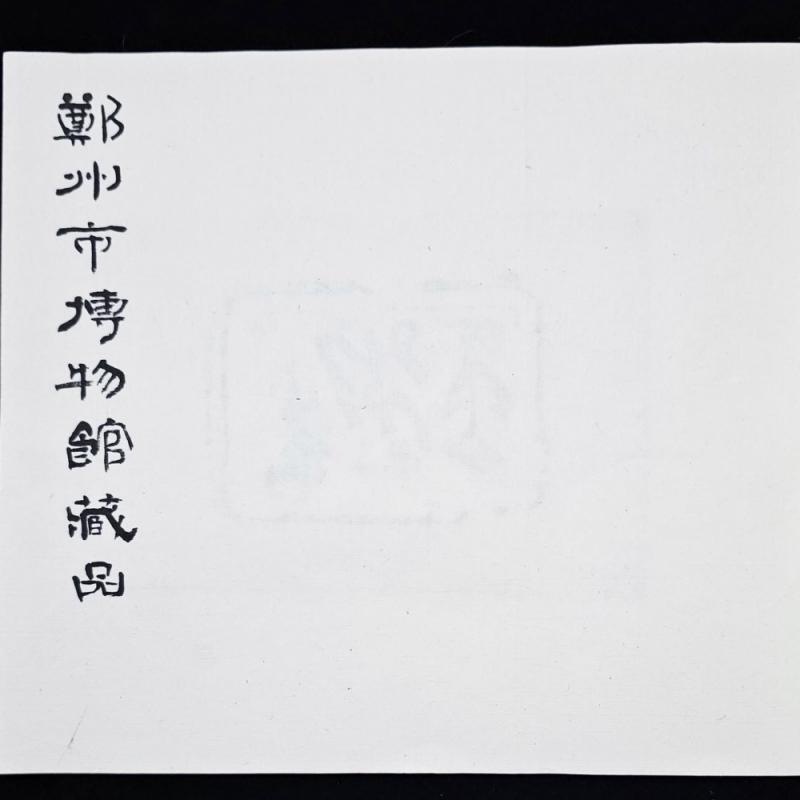 鄭州市博物館藏品